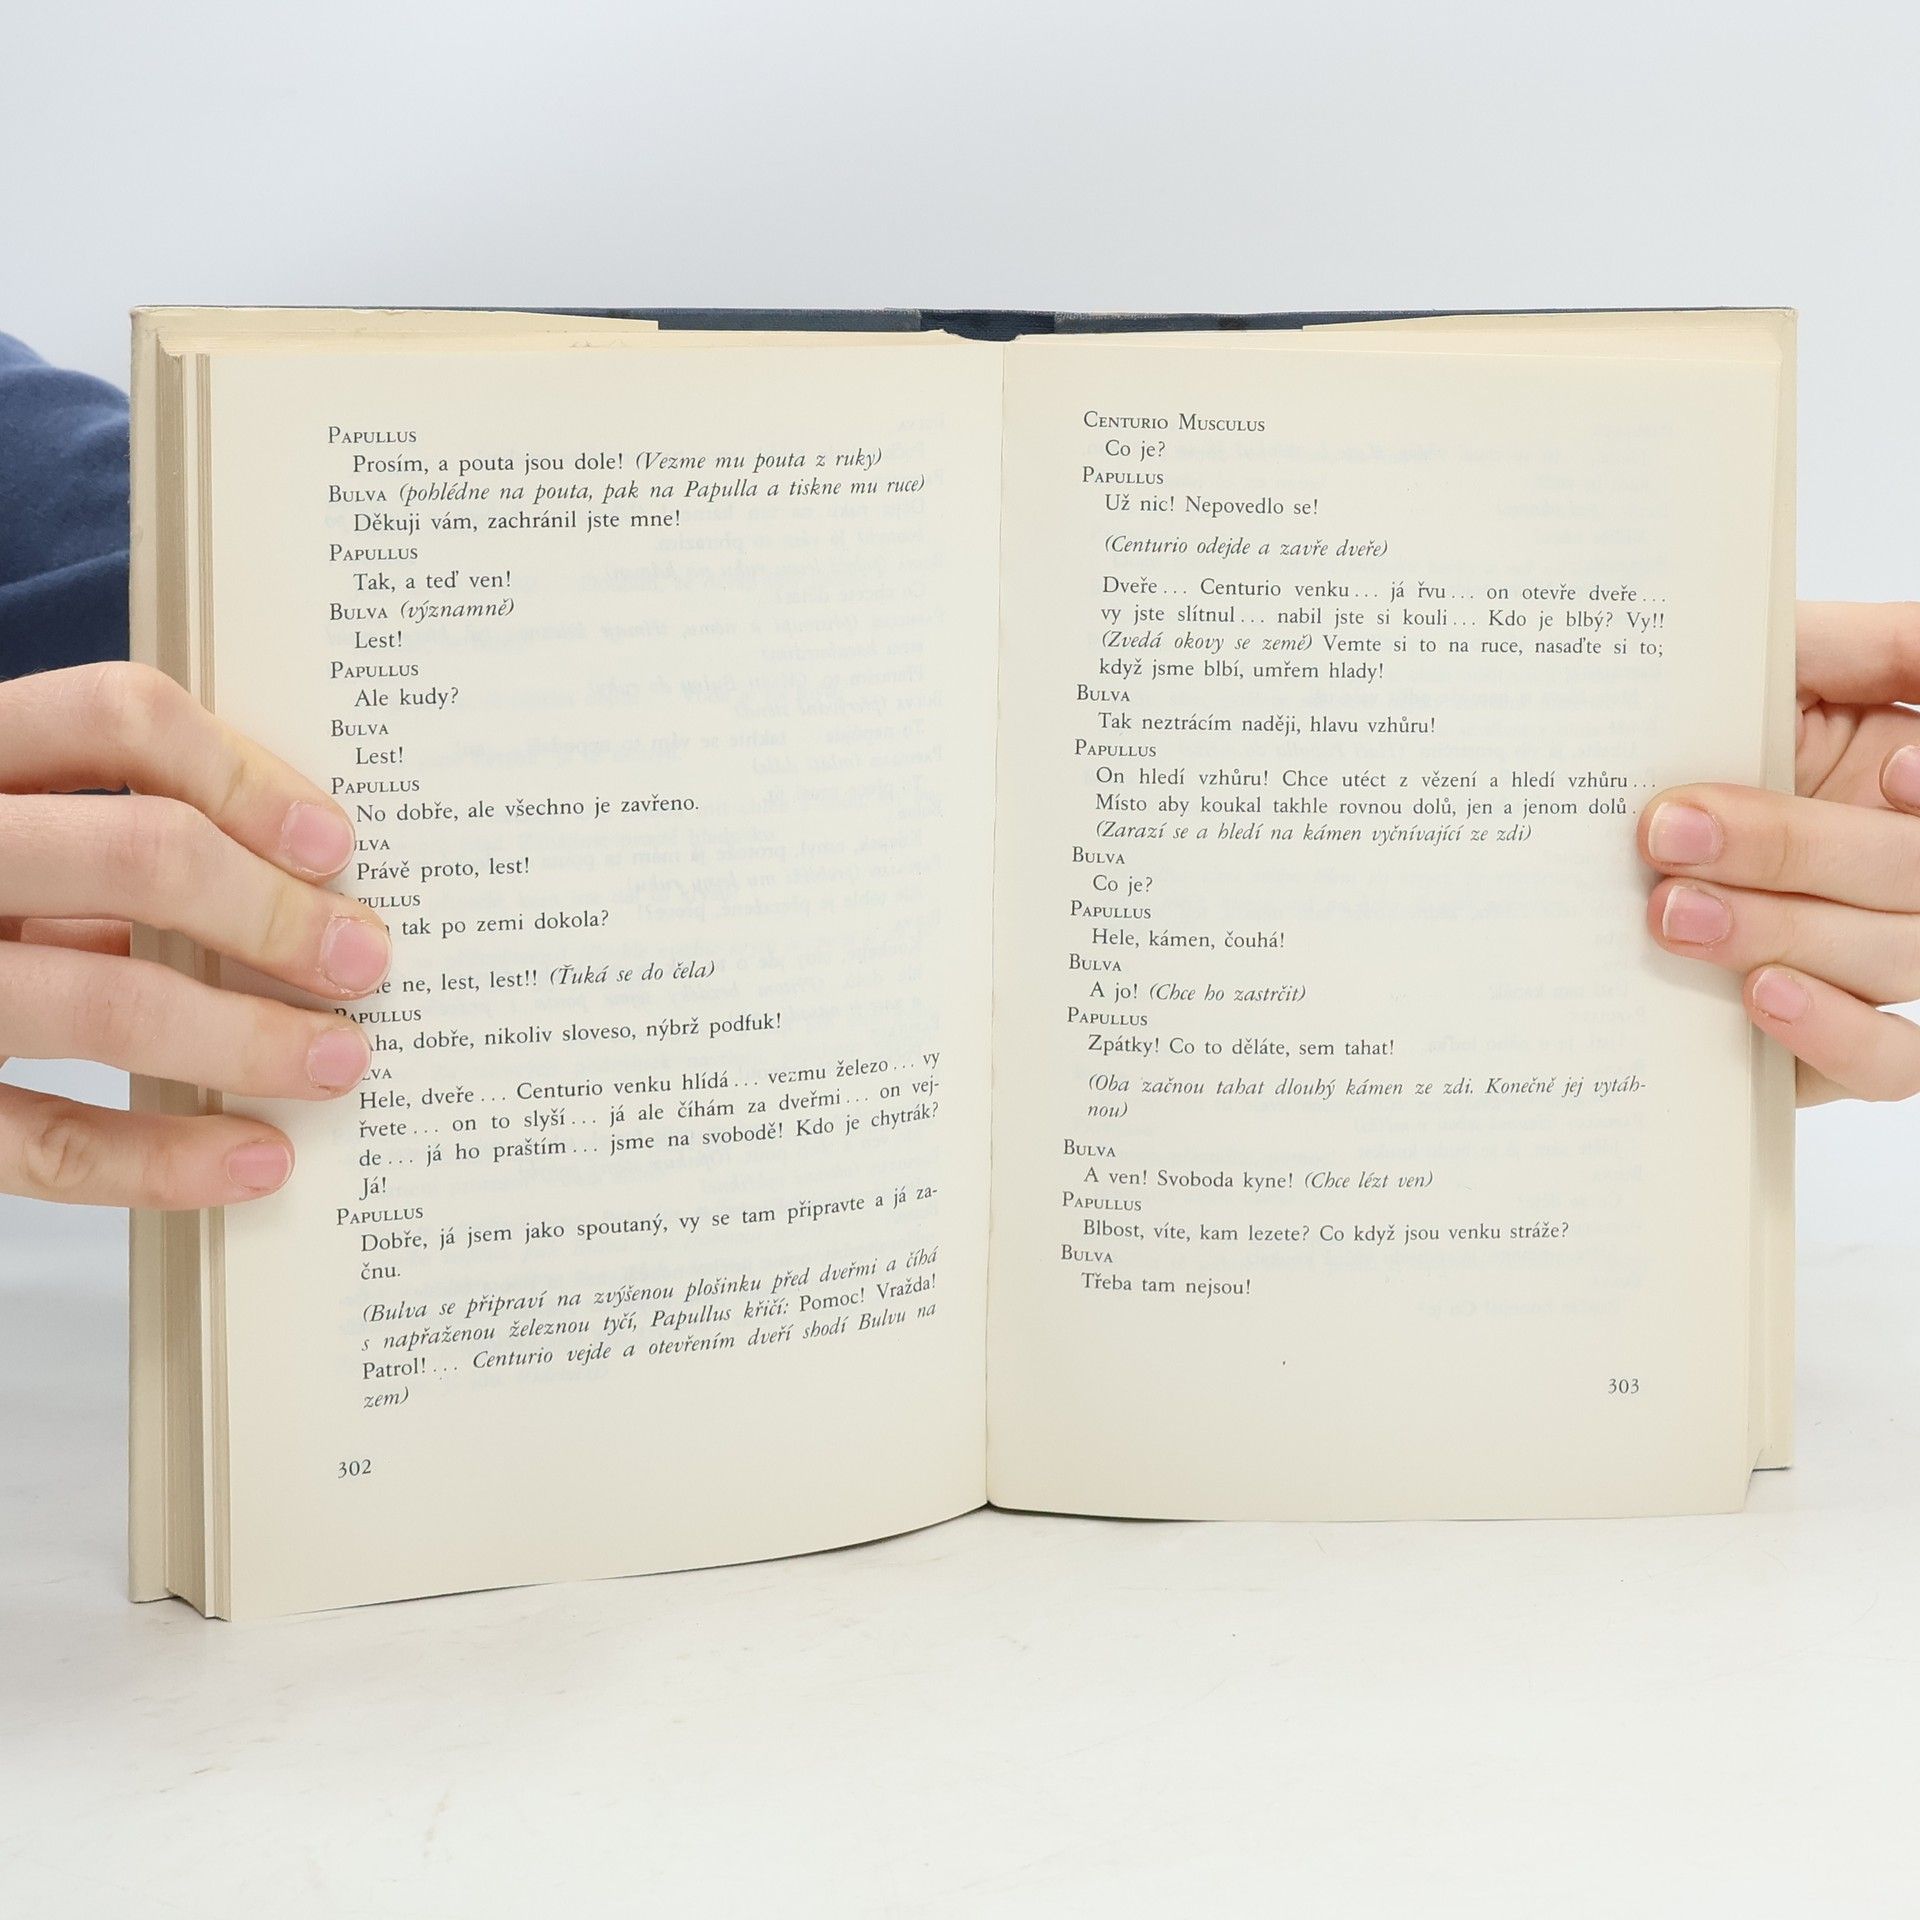 PAPULLUS
Prosím, a pouta jsou dole! (Vezme mu pouta z ruky)
BULVA (pohlédne na pouta, pak na Papulla a tiskne mu ruce)
Děkuji vám, zachránil jste mne!
PAPULLUS
Tak, a teď ven!
BULVA (významně)
Lest!
PAPULLUS
Ale kudy?
BULVA
Lest!
PAPULLUS
No dobře, ale všechno je zavřeno.
LVA
Právě proto, lest!
PULLUS
tak po zemi dokola?
ne, lest, lest!! (Ťuká se do čela)
PAPULLUS
Aha, dobře, nikoliv sloveso, nýbrž podfuk!
LVA
Hele, dveře... Centurio venku hlídá... vezmu železo... vy
řvete... on to slyší... já ale číhám za dveřmi... on vej-
de... já ho praštím... jsme na svobodě! Kdo je chytrák?
Já!
PAPULLUS
Dobře, já jsem jako spoutaný, vy se tam připravte a já za-
čnu.
(Bulva se připraví na zvýšenou plošinku před dveřmi a číhá
s napřaženou železnou tyčí, Papullus křičí: Pomoc! Vražda!
Patrol!... Centurio vejde a otevřením dveří shodí Bulvu na
zem)
302
CENTURIO MUSCULUS
Co je?
PAPULLUS
Už nic! Nepovedlo se!
(Centurio odejde a zavře dveře)
Dveře... Centurio venku... já řvu... on otevře dveře...
vy jste slítnul... nabil jste si kouli... Kdo je blbý? Vy!!
(Zvedá okovy se země) Vemte si to na ruce, nasaďte si to;
když jsme blbí, umřem hlady!
BULVA
Tak neztrácím naději, hlavu vzhůru!
PAPULLUS
On hledí vzhůru! Chce utéct z vězení a hledí vzhůru...
Místo aby koukal takhle rovnou dolů, jen a jenom dolů.
(Zarazí se a hledí na kámen vyčnívající ze zdi)
BULVA
Co je?
PAPULLUS
Hele, kámen, čouhá!
BULVA
A jo! (Chce ho zastrčit)
PAPULLUS
Zpátky! Co to děláte, sem tahat!
(Oba začnou tahat dlouhý kámen ze zdi. Konečně jej vytáh-
nou)
BULVA
A ven! Svoboda kyne! (Chce lézt ven)
PAPULLUS
Blbost, víte, kam lezete? Co když jsou venku stráže?
BULVA
Třeba tam nejsou!
303